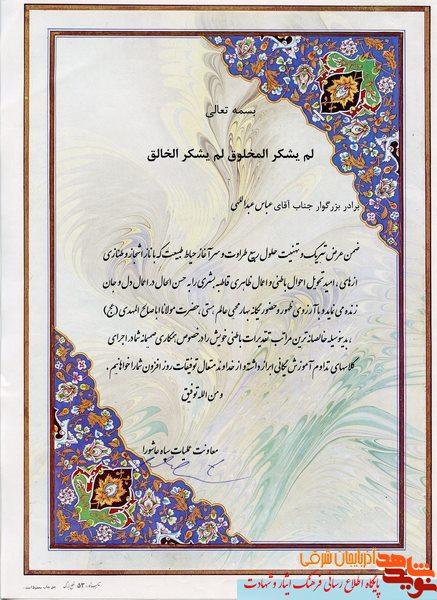 بسمه تعالی
لم یشکر المخلوق لم یشکر الخالق
برادر بزرگوار جناب آقای عباس عبداللهی
ضمن عرض تبریک و تهنیت حلول ربیع طراوت و سرآغاز حیاط طبیعت که با ناز اشجار و طنازی
ازهای ، امید تحویل احوال باطنی و اعمال ظاهری قاطبه بشری را به حسن الحال در اعمال دل و جان
زنده می نماید و با آرزوی ظهور و حضور یگانه بهار محیی عالم هستی ، حضرت مولانا اباصالح المهدی (عج)
، بدینوسیله خالصانه ترین مراتب تقدیرات باطنی خویش را در خصوص همکاری صمیمانه شما در اجرای
کلاسهای تداوم آموزش یگانی ابراز داشته و از خداوند متعال توفیقات روز افزون شما را خواهانیم .
و من الله توفیق
معاونت عملیات سپاه عاشورا
نوید شاهد
آذربایجان شرقی
پایگاه اطلاع رسانی فرهنگ ایثار و شهادت